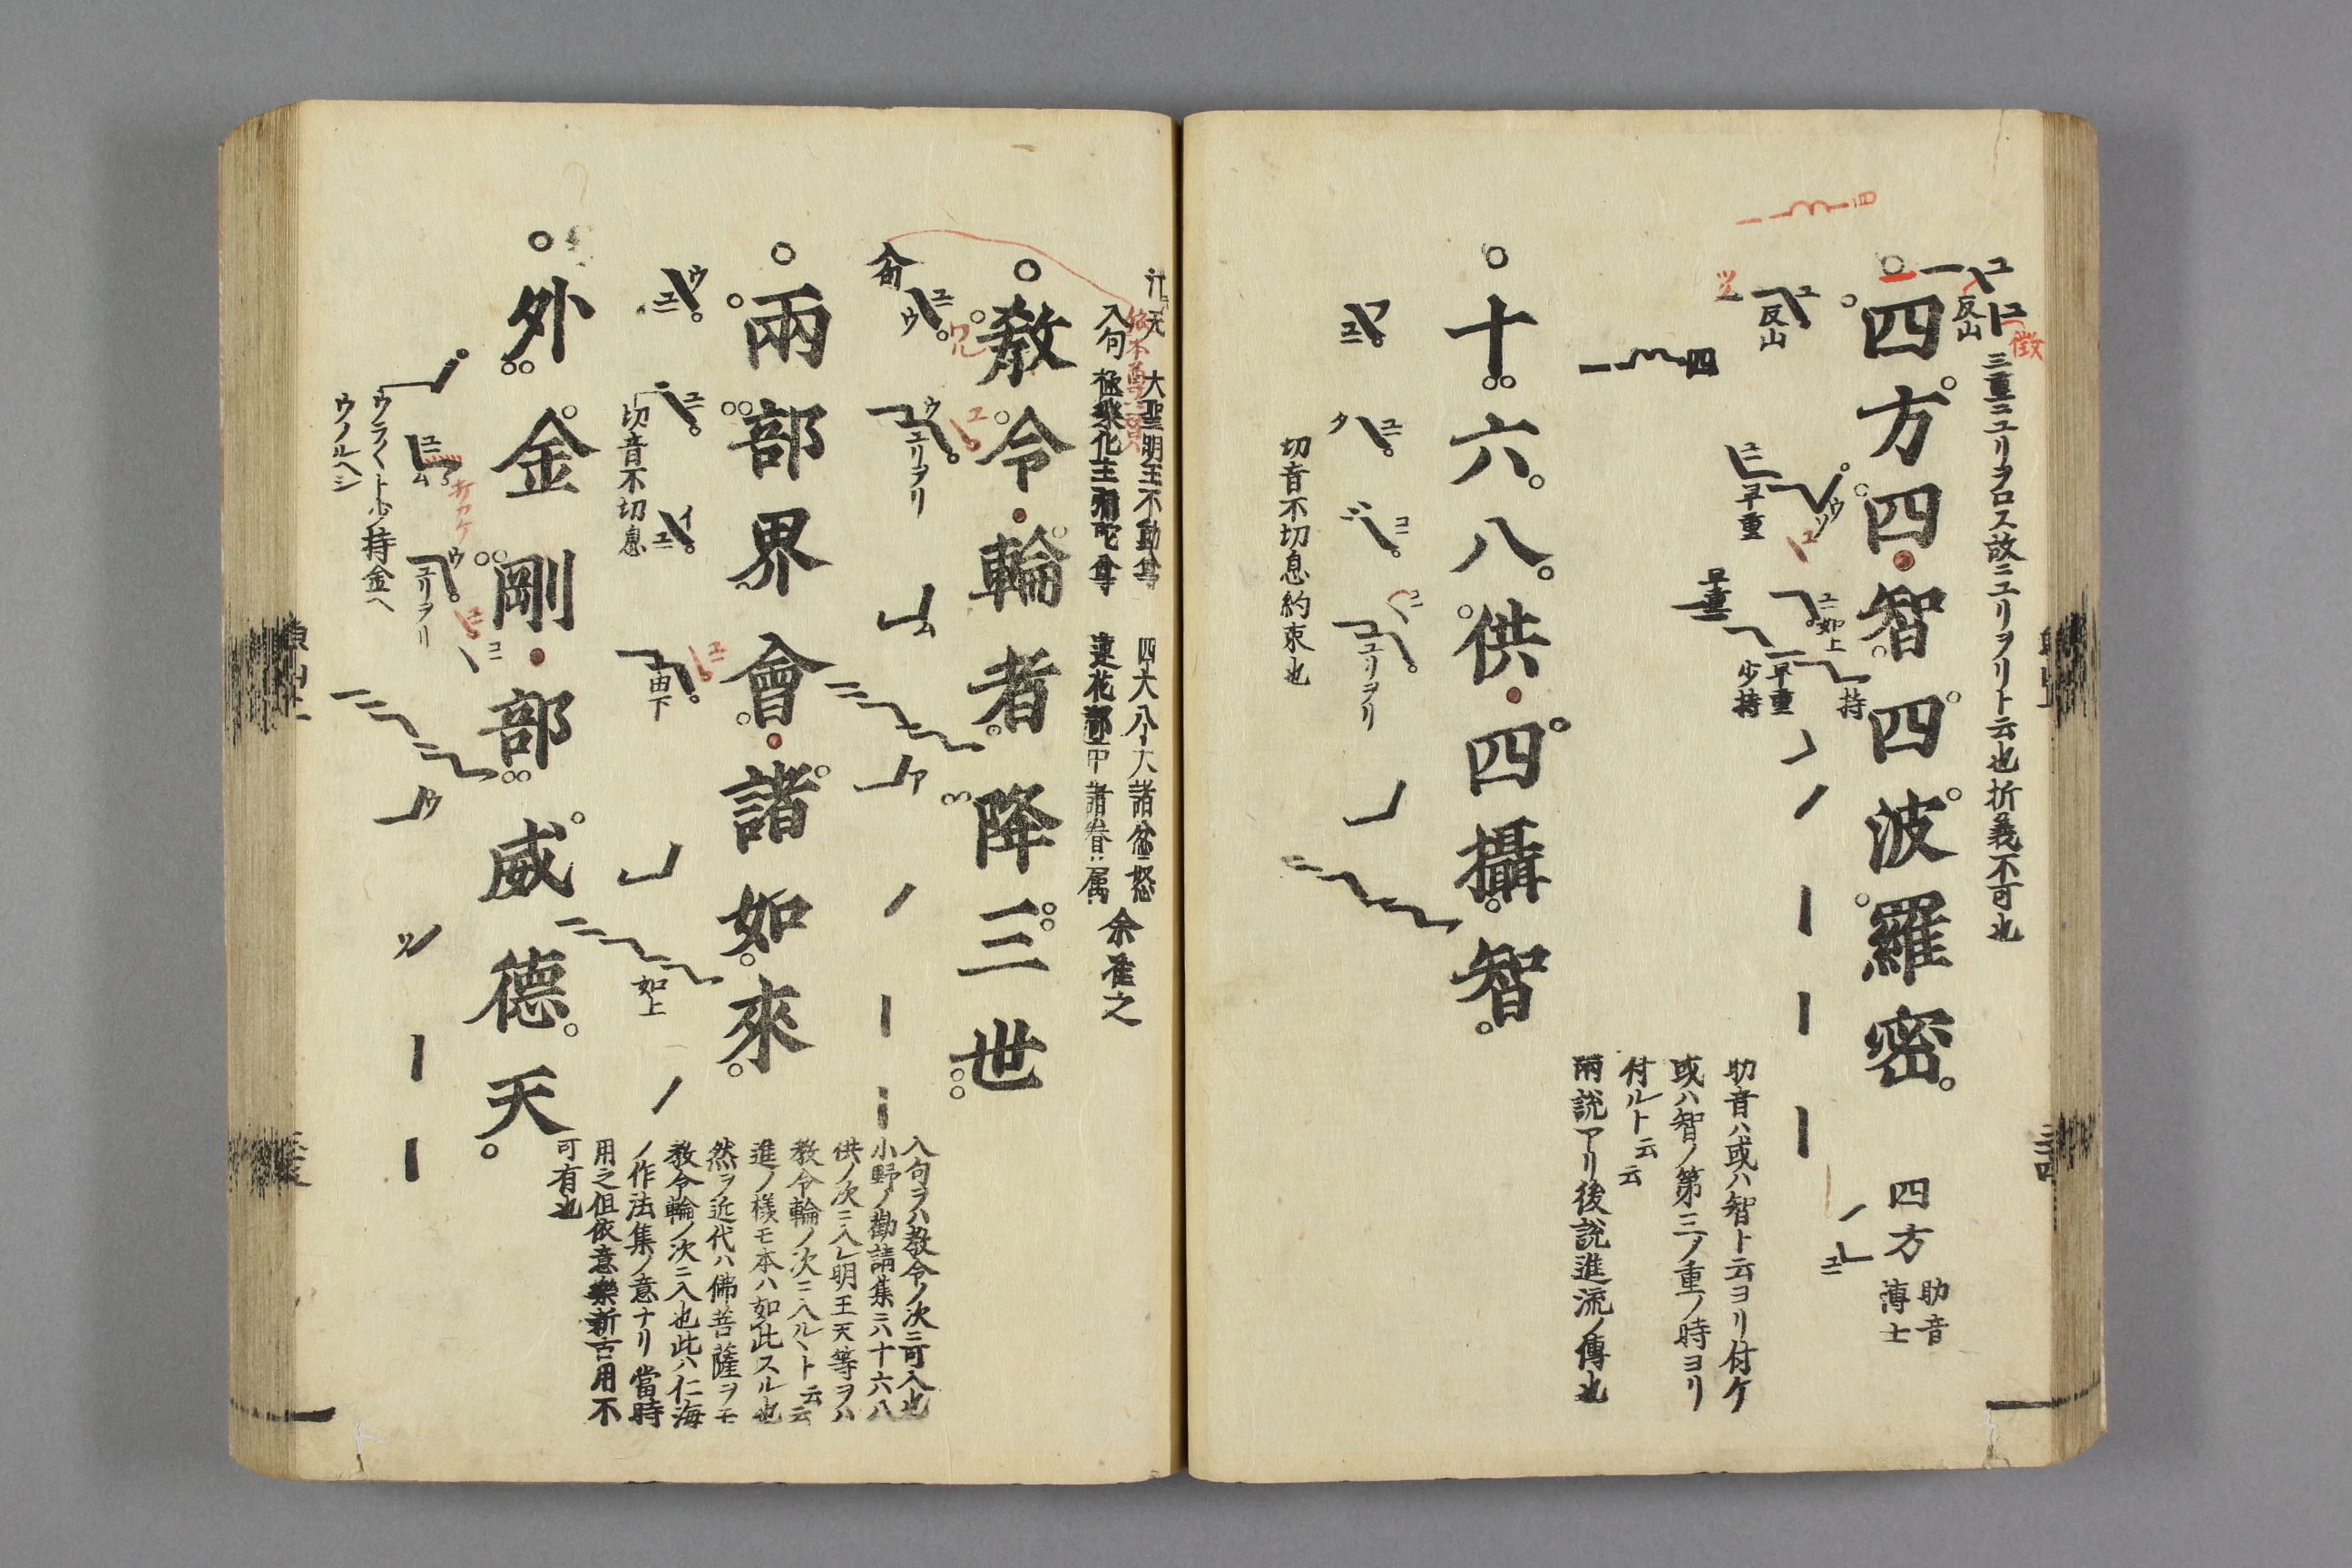 三重ニユリヲロス故ニユリヲリト云也折義不可也
徴
反山
四方四智四波羅密
四方
助音
薄士
反山
早重
如上
持
早重
少持
四
助音ハ或ハ智ト云ヨリ付ケ
或ハ智ノ第三ノ重ノ時ヨリ
付ルト云云
兩説アリ後説進流ノ傳也
十六八供四攝智
ユリヲリ
切音不切息約束也
大聖明王不動尊 四大八大諸忿怒
入句 極樂化主彌陀尊 蓮花部中諸眷属 余准之
教令輪者降三世
ユリヲリ
入句ヲハ教令ノ次ニ可入也
小野ノ勸請集ニハ十六八
供ノ次ニ入レ明王天等ヲハ
教令輪ノ次ニ入ルヽト云云
進ノ様モ本ハ如此スル也
然ヲ近代ハ佛菩薩ヲモ
教令輪ノ次ニ入也此ハ仁海
ノ作法集ノ意ナリ當時
用之但依意樂新古用不
可有也
兩部界會諸如來
由下
如上
切音不切息
外金剛部威德天
ユリヲリ
ウラくト少持金ヘ
ウノルヘシ